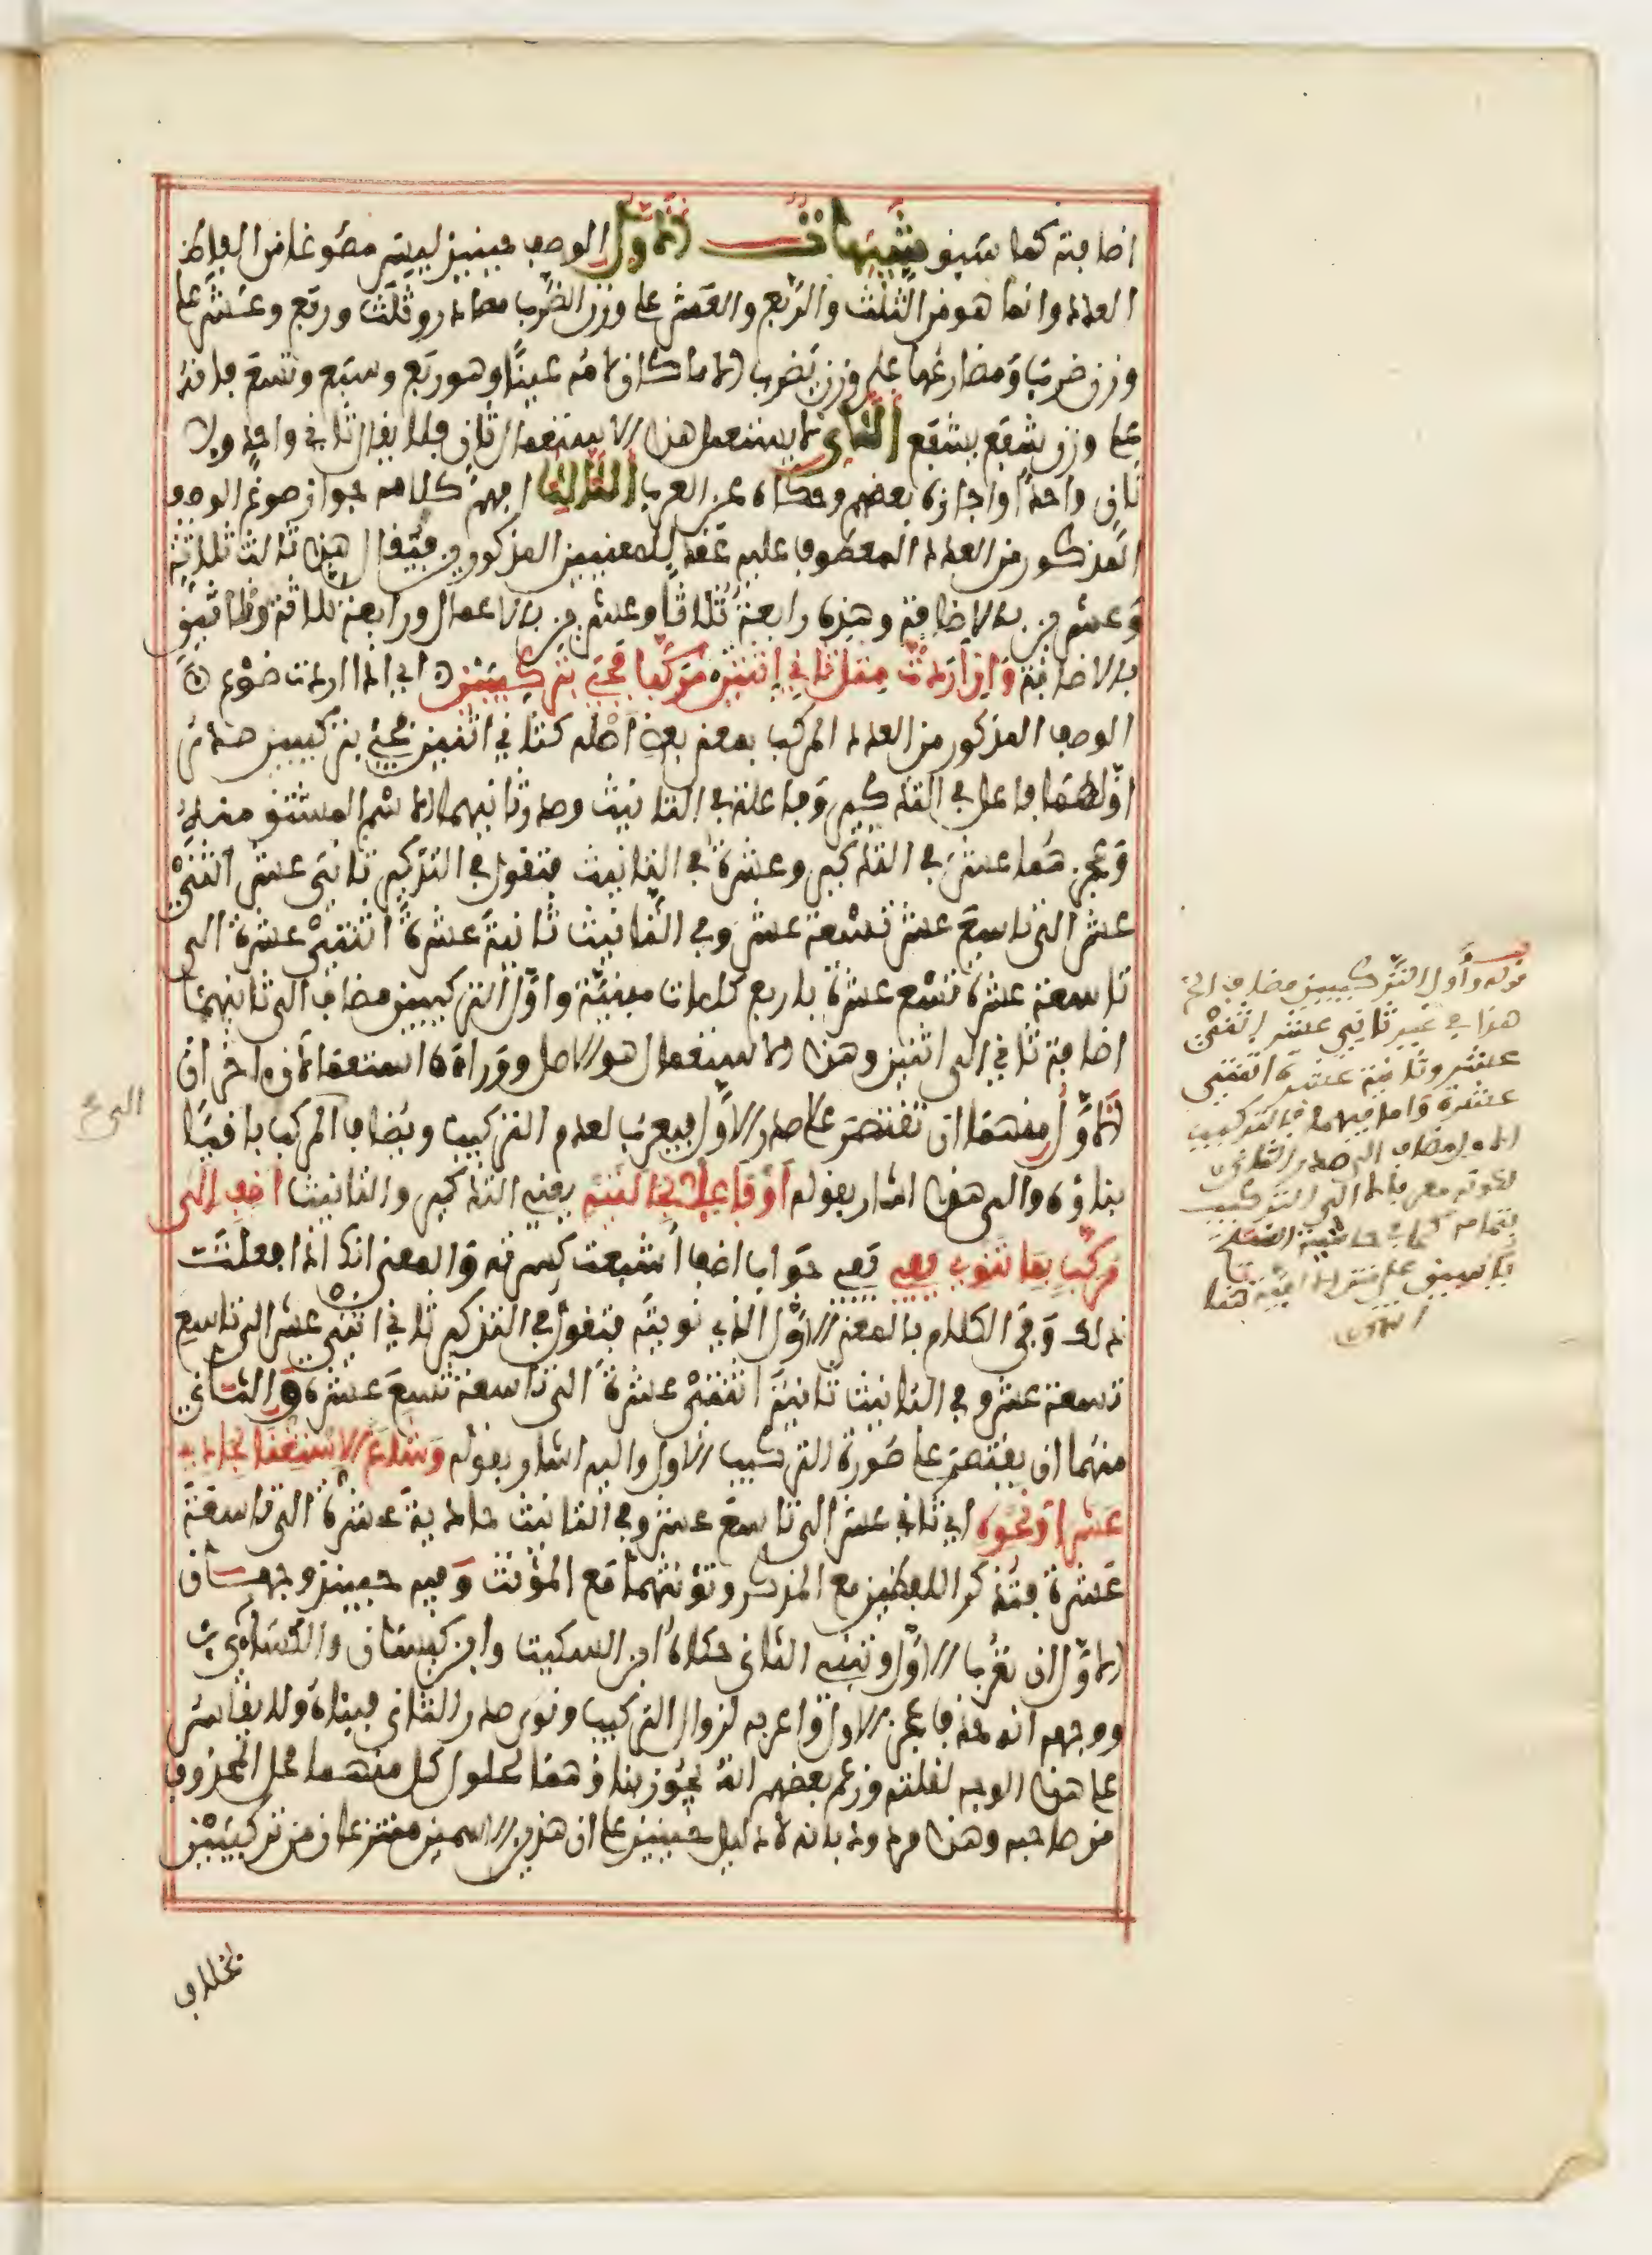 اضافته كما سبق تنبيهات الاول الوصف حينئذ ليس مصوغا من الفاظ
العدد وانما هو من الثلث والربع والعشر على وزن الضرب مصادر وثلث وربع وعشر على
وزن ضرب ومضارعها على وزن يضرب الا ما كان لامه عينا وهو ربع وسبع وتسع فانه
على وزن شفع يشفع الثاني لا يستعمل هذا الاستعمال ثان فلا يقال ثاني واحد ولا
ثان واحدا واجازه بعضهم وحكاه عن العرب الثالث افهم كلامه جواز صوغ الوصف
المذكور من العدد المعطوف عليه عقد للمعنيين المذكورين فيقال هذا ثالث ثلاثة
وعشرين بالاضافة وهذه رابعة ثلاثا وعشرين بالاعمال ورابعة ثلاثة وثلاثين
بالاضافة وان اردت مثل ثاني اثنين مركبا فجئ بتركيبين اي اذا اردت صوغ
الوصف المذكور من العدد المركب بمعنى بعض اصله كثاني اثنين فجئ بتركيبين صدر
اولهما فاعل في التذكير وفاعلة في التانيث وصدر ثانيهما الاسم المشتق منه
وعجزهما عشر في التذكير وعشرة في التانيث فتقول في التذكير ثاني عشر اثني
عشر الى تاسع عشر تسعة عشر وفي التانيث ثانية عشرة اثنتي عشرة الى
تاسعة عشرة تسع عشرة باربع كلمات مبنية واول التركيبين مضاف الى ثانيهما
اضافة ثاني الى اثنين وهذا الاستعمال هو الاصل ووراءه استعمالان اخران
الاول منهما ان تقتصر على صدر الاول فيعرب لعدم التركيب ويضاف المركب باقيا
بناؤه والى هذا اشار بقوله او فاعلا بحالتيه يعني التذكير والتانيث اضف الى
مركب بما تنوي يفي يفي جواب اضف اشبعت كسرته والمعنى انك اذا فعلت
ذلك وفى الكلام بالمعنى الاول الذي نويته فتقول في التذكير ثاني اثني عشر الى تاسع
تسعة عشر وفي التانيث ثانية اثنتي عشرة الى تاسعة تسع عشرة والثاني
منهما ان يقتصر على صورة التركيب الاول واليه اشار بقوله وشاع الاستغنا بحادي
عشرا ونحوه اي ثاني عشر الى تاسع عشر وفي التانيث حادية عشرة الى تاسعة
عشرة فتذكر اللفظين مع المذكر وتؤنثهما مع المؤنث وفيه حينئذ وجهان
الاول ان تعرب الاول وتبني الثاني حكاه ابن السكيت وابن كيسان والكسائي
ووجهه انه حذف عجز الاول فاعربه لزوال التركيب ونوى صدر الثاني فبناه ولا يقاس
على هذا الوجه لقلته وزعم بعضهم انه يجوز بناؤهما لحلول كل منهما محل المحذوف
من صاحبه وهذا مردود بانه لا دليل حينئذ على ان هذين الاسمين منتزعان من تركيبين
بخلاف
قوله واول التركيبين مضاف الخ
هذا في غير ثاني عشر اثني
عشر وثانية عشرة اثنتي
عشرة واما فيهما فالتركيب
الاول مضاف الى صدر الثاني